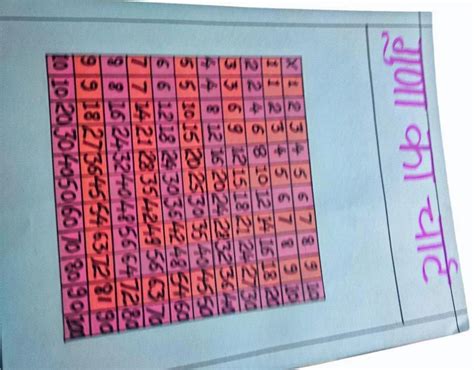 गुणा का चार्ट
x 1 2 3 4 5 6 7 8 9 10
1 1 2 3 4 5 6 7 8 9 10
2 2 4 6 8 10 12 14 16 18 20
3 3 6 9 12 15 18 21 24 27 30
4 4 8 12 16 20 24 28 32 36 40
5 5 10 15 20 25 30 35 40 45 50
6 6 12 18 24 30 36 42 48 54 60
7 7 14 21 28 35 42 49 56 63 70
8 8 16 24 32 40 48 56 64 72 80
9 9 18 27 36 45 54 63 72 81 90
10 10 20 30 40 50 60 70 80 90 100